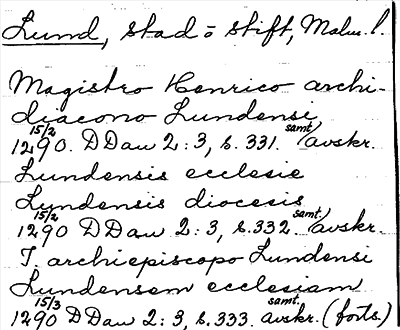 Lund, stad o stift, Malm. l.
Magistro Henrico archi-
diacono Lundensi
15/2 1290. DDan 2:3, s. 331. samt. avskr.
Lundensis ecclesie
Lundensis diocesis
15/2 1290 DDan 2:3, s. 332. samt. avskr.
J. archiepiscopo Lundensi
Lundensem ecclesiam
15/3 1290 DDan 2:3, s. 333. samt. avskr. (forts.)